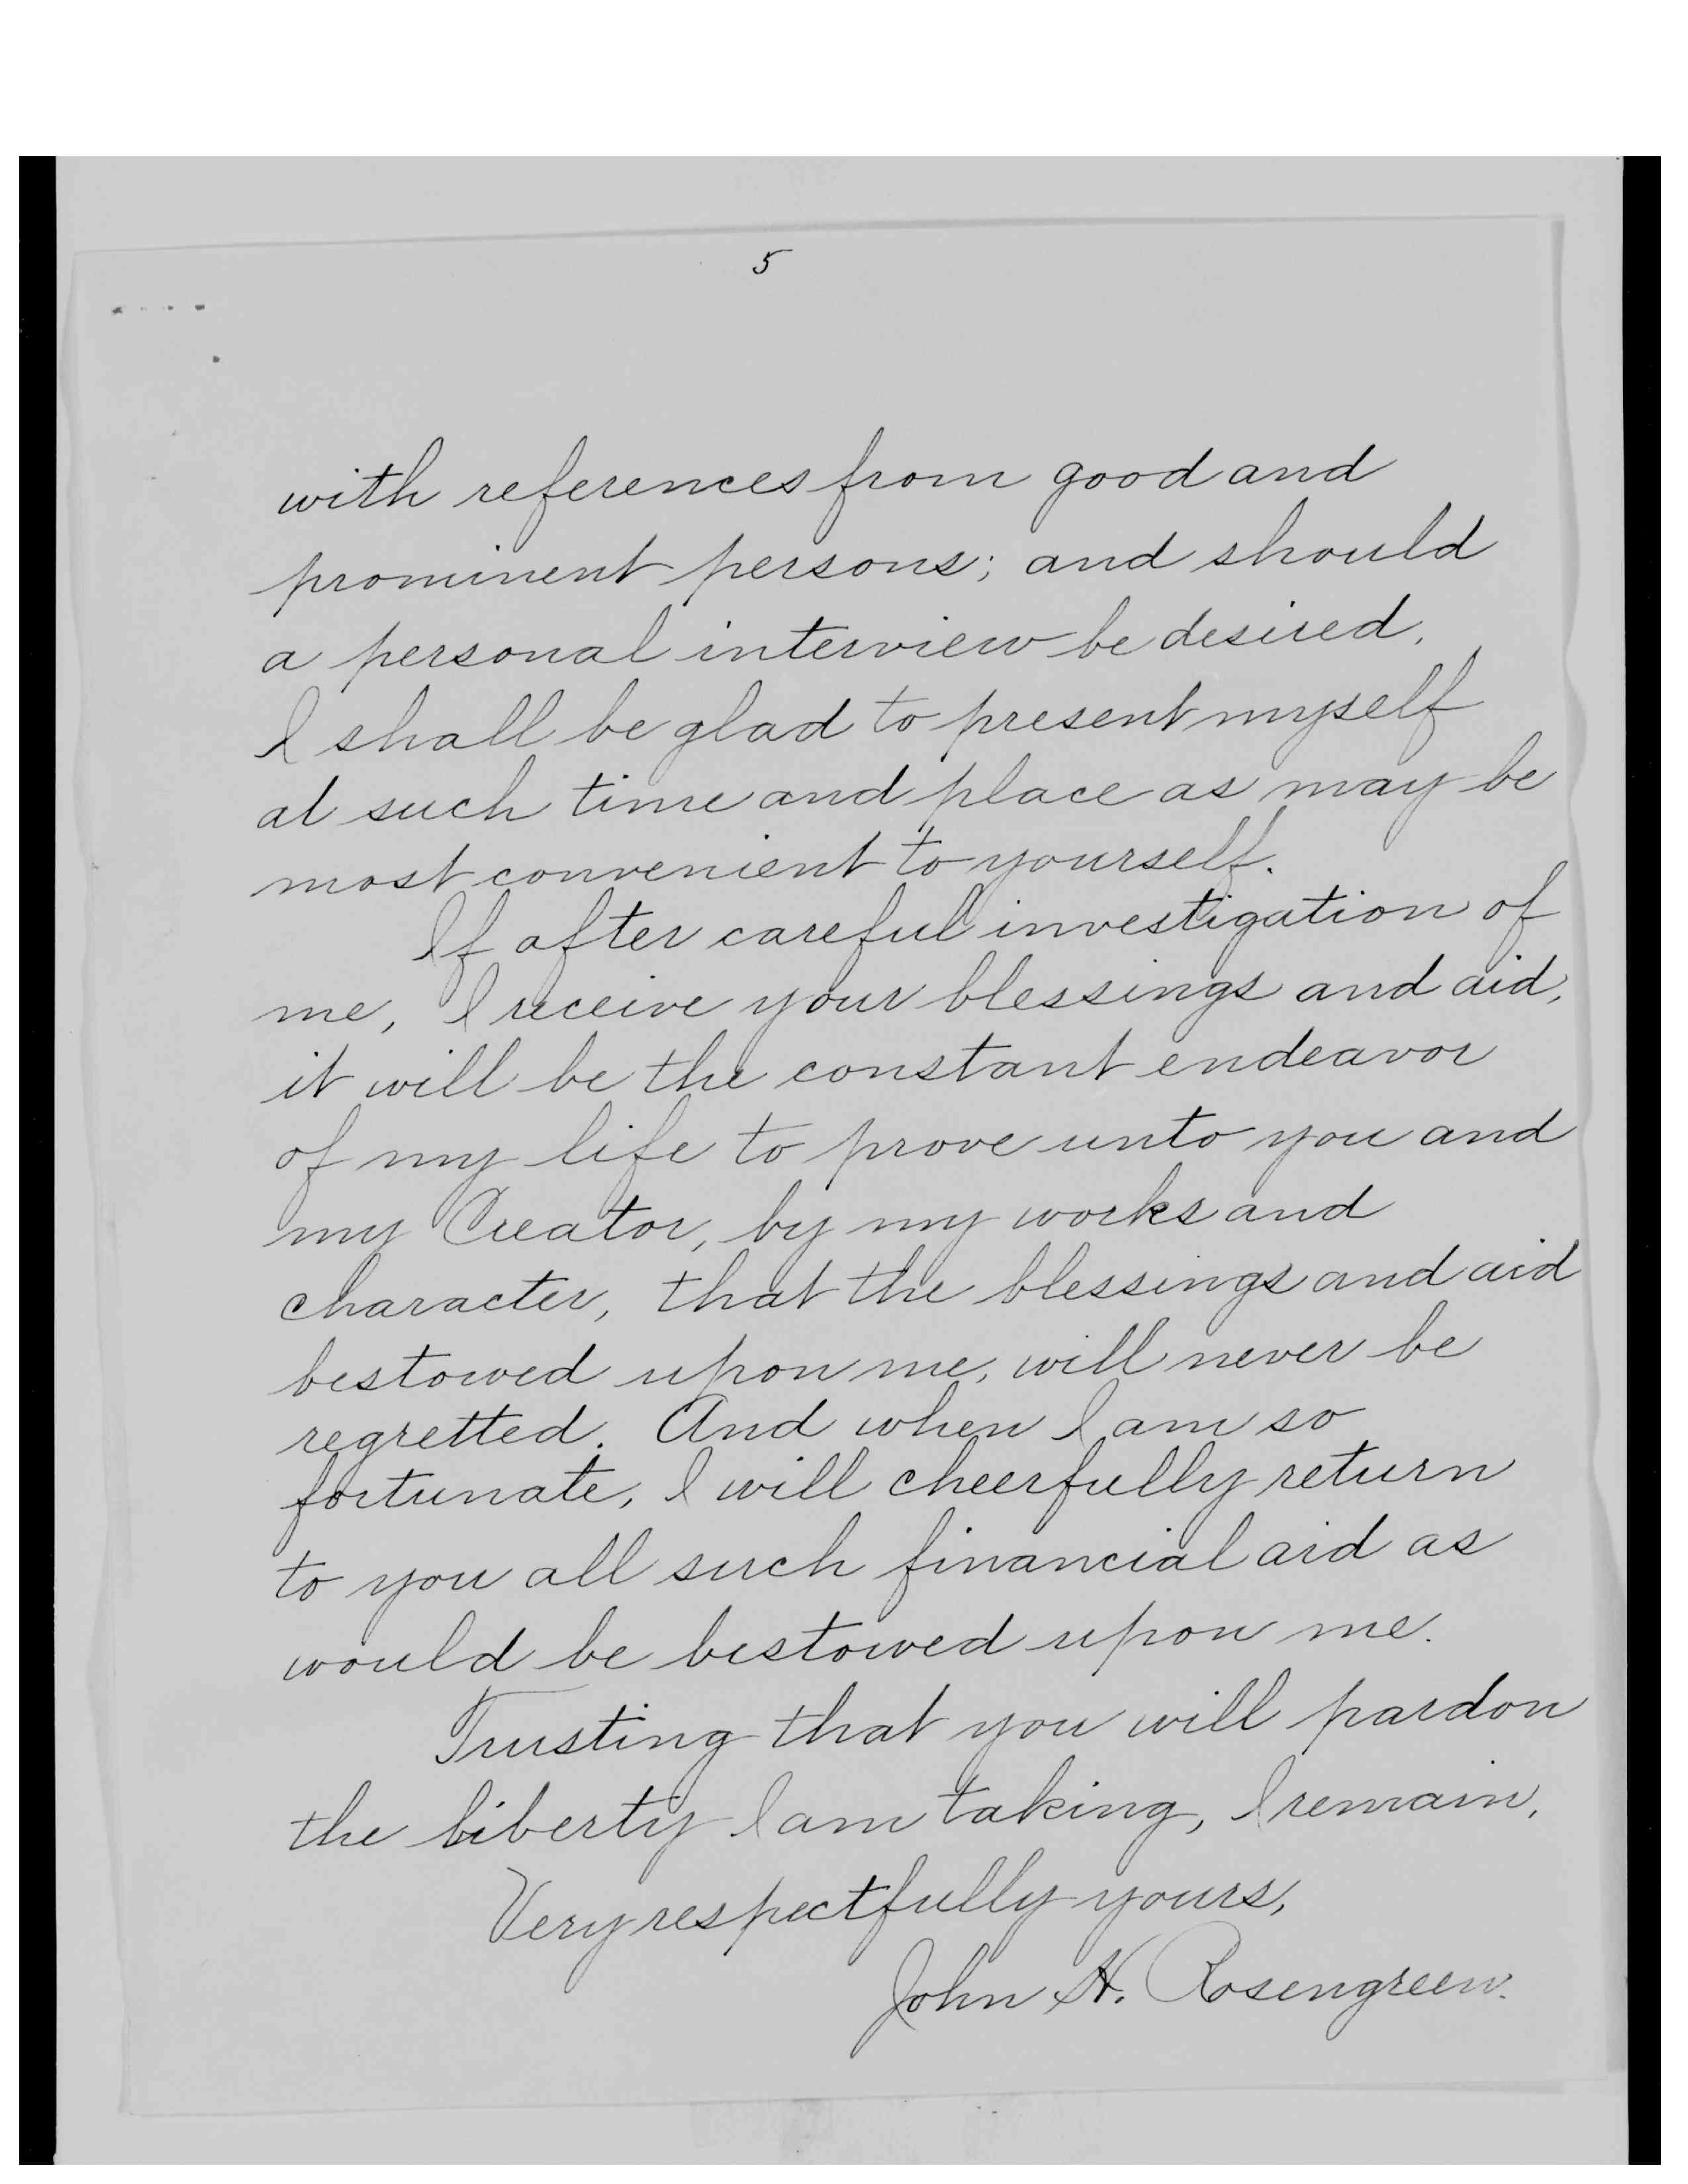 5
with references from good and
prominent persons; and should
a personal interview be desired,
I shall be glad to present myself
at such time and place as may be
most convenient to yourself.
If after careful investigation of
me, I receive your blessings and aid,
it will be the constant endeavor
of my life to prove unto you and
my Creator, by my works and
character, that the blessings and aid
bestowed upon me, will never be
regretted. And when I am so
fortunate, I will cheerfully return
to you all such financial aid as
would be bestowed upon me.
Trusting that you will pardon
the liberty I am taking, I remain,
Very respectfully yours,
John H. Rosengreen.